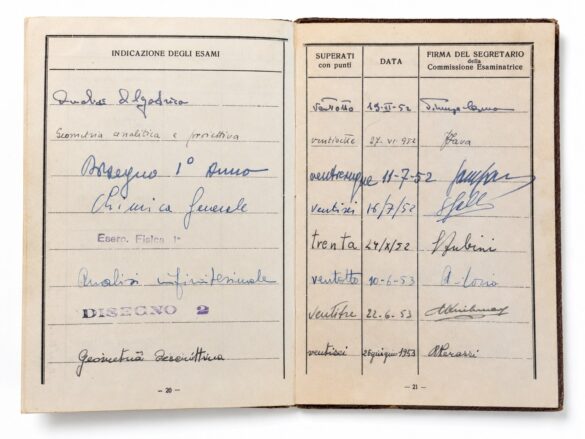 INDICAZIONE DEGLI ESAMI
Analisi Algebrica
Geometria analitica e proiettiva
Disegno 1° Anno
Chimica Generale
Eserc. Fisica 1ª
Analisi infinitesimale
DISEGNO 2
Geometria descrittiva
— 20 —
SUPERATI con punti DATA FIRMA DEL SEGRETARIO della Commissione Esaminatrice
ventotto 19-VI-52
ventisette 27. VI 952 Fava
ventinique 11-7-52
ventisei 16/7/52
trenta 24/X/52 S Fubini
ventotto 10-6-53
ventitre 22-6-53
ventisei 26 giugno 1953
— 21 —